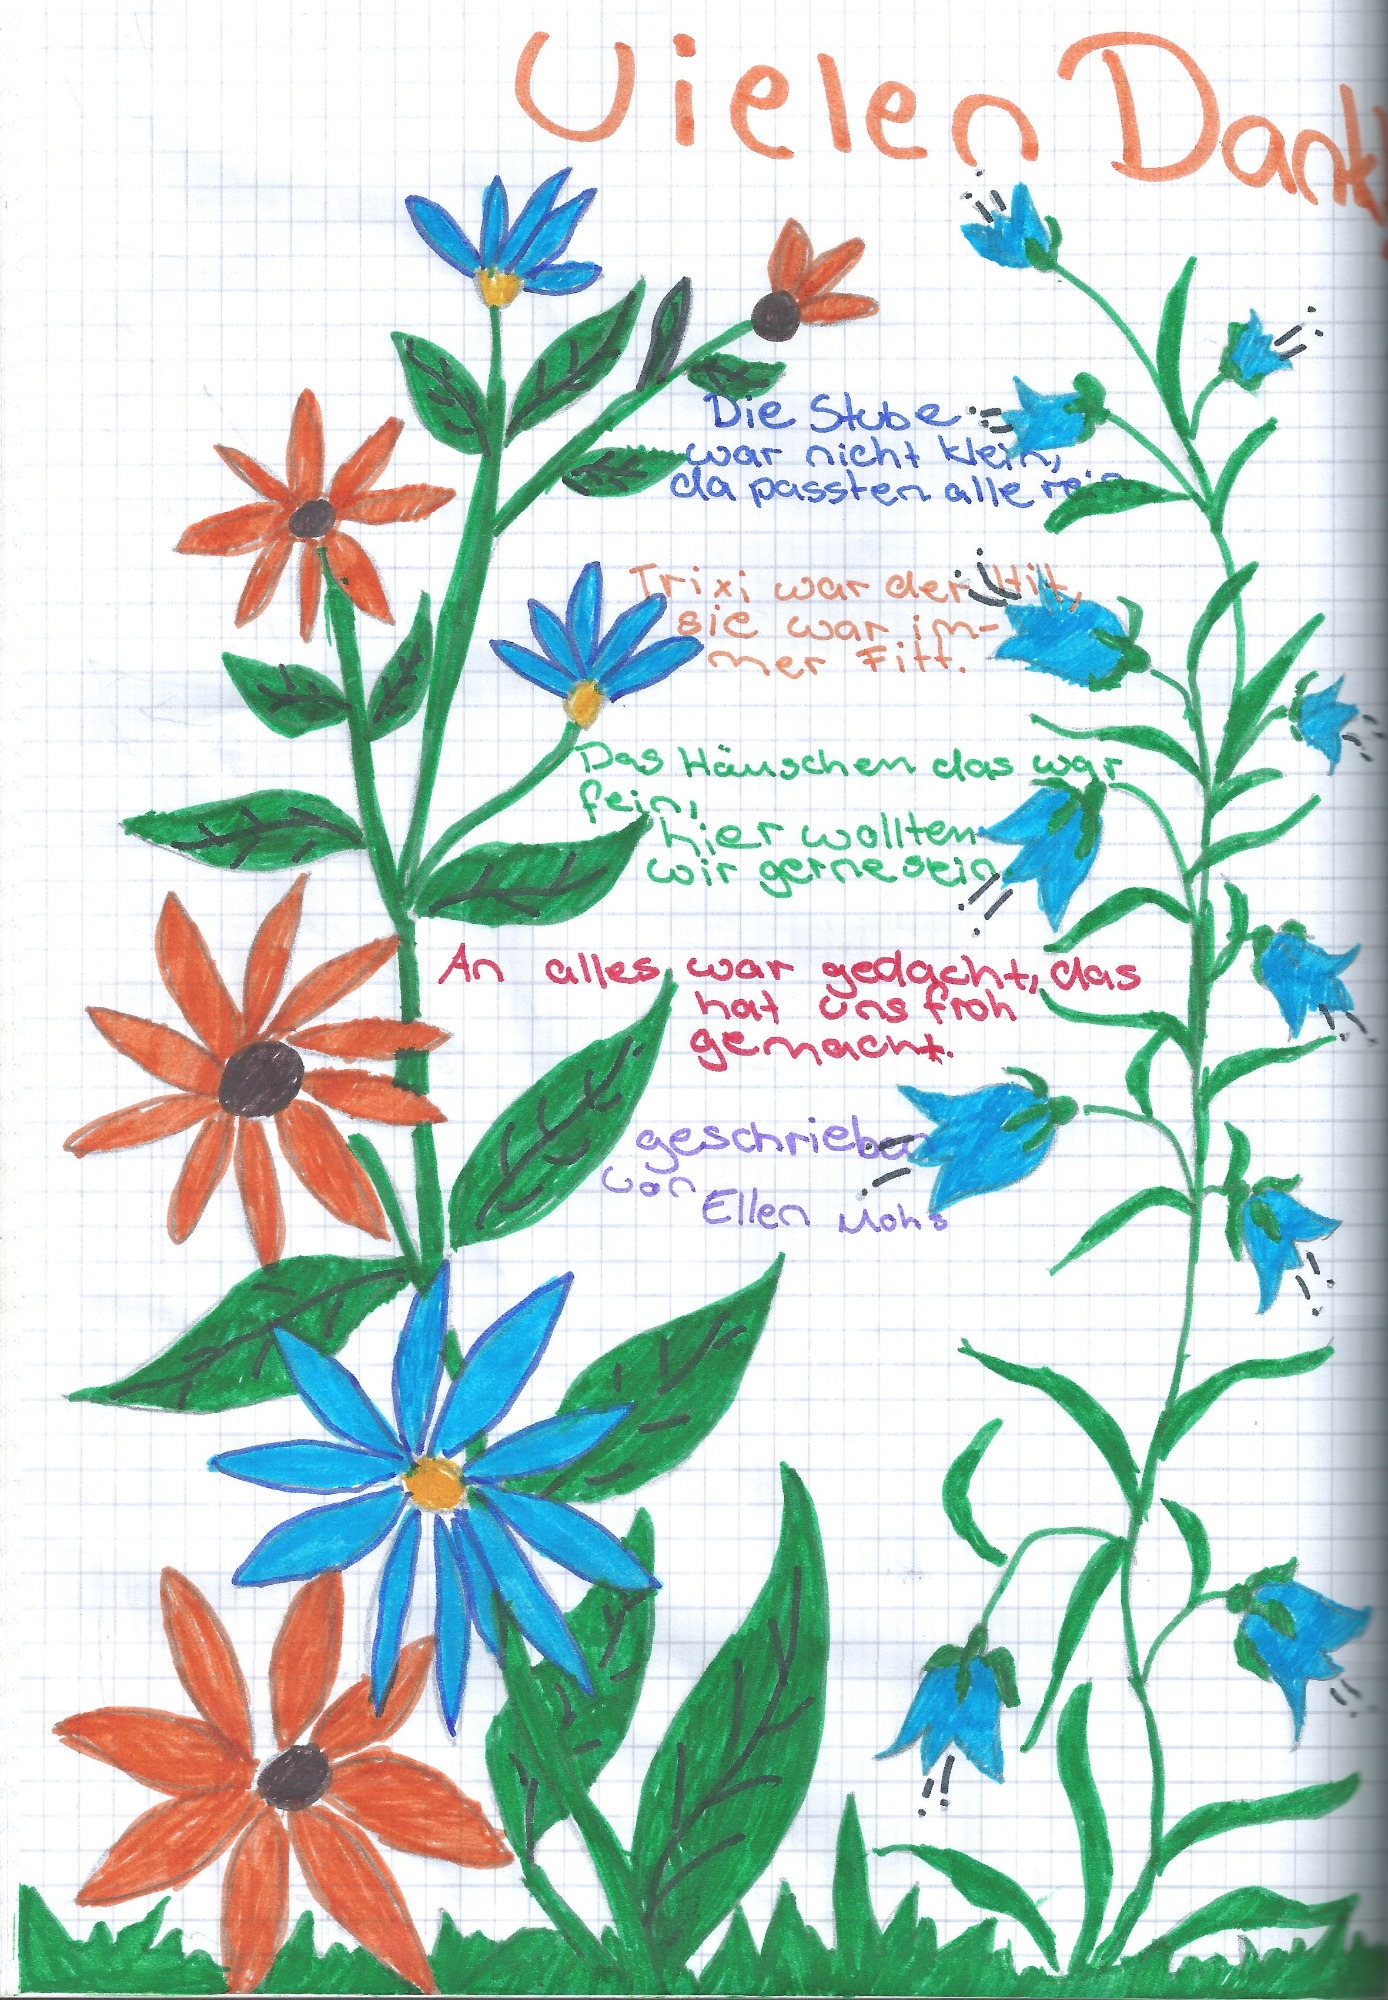 Vielen Dank!
Die Stube
war nicht klein,
da passten alle rein.
Trixi war der Hit,
sie war im-
mer Fitt.
Das Häuschen das war
fein,
hier wollten
wir gerne sein.
An alles war gedacht, das
hat uns froh
gemacht.
geschrieben
von
Ellen Mohs